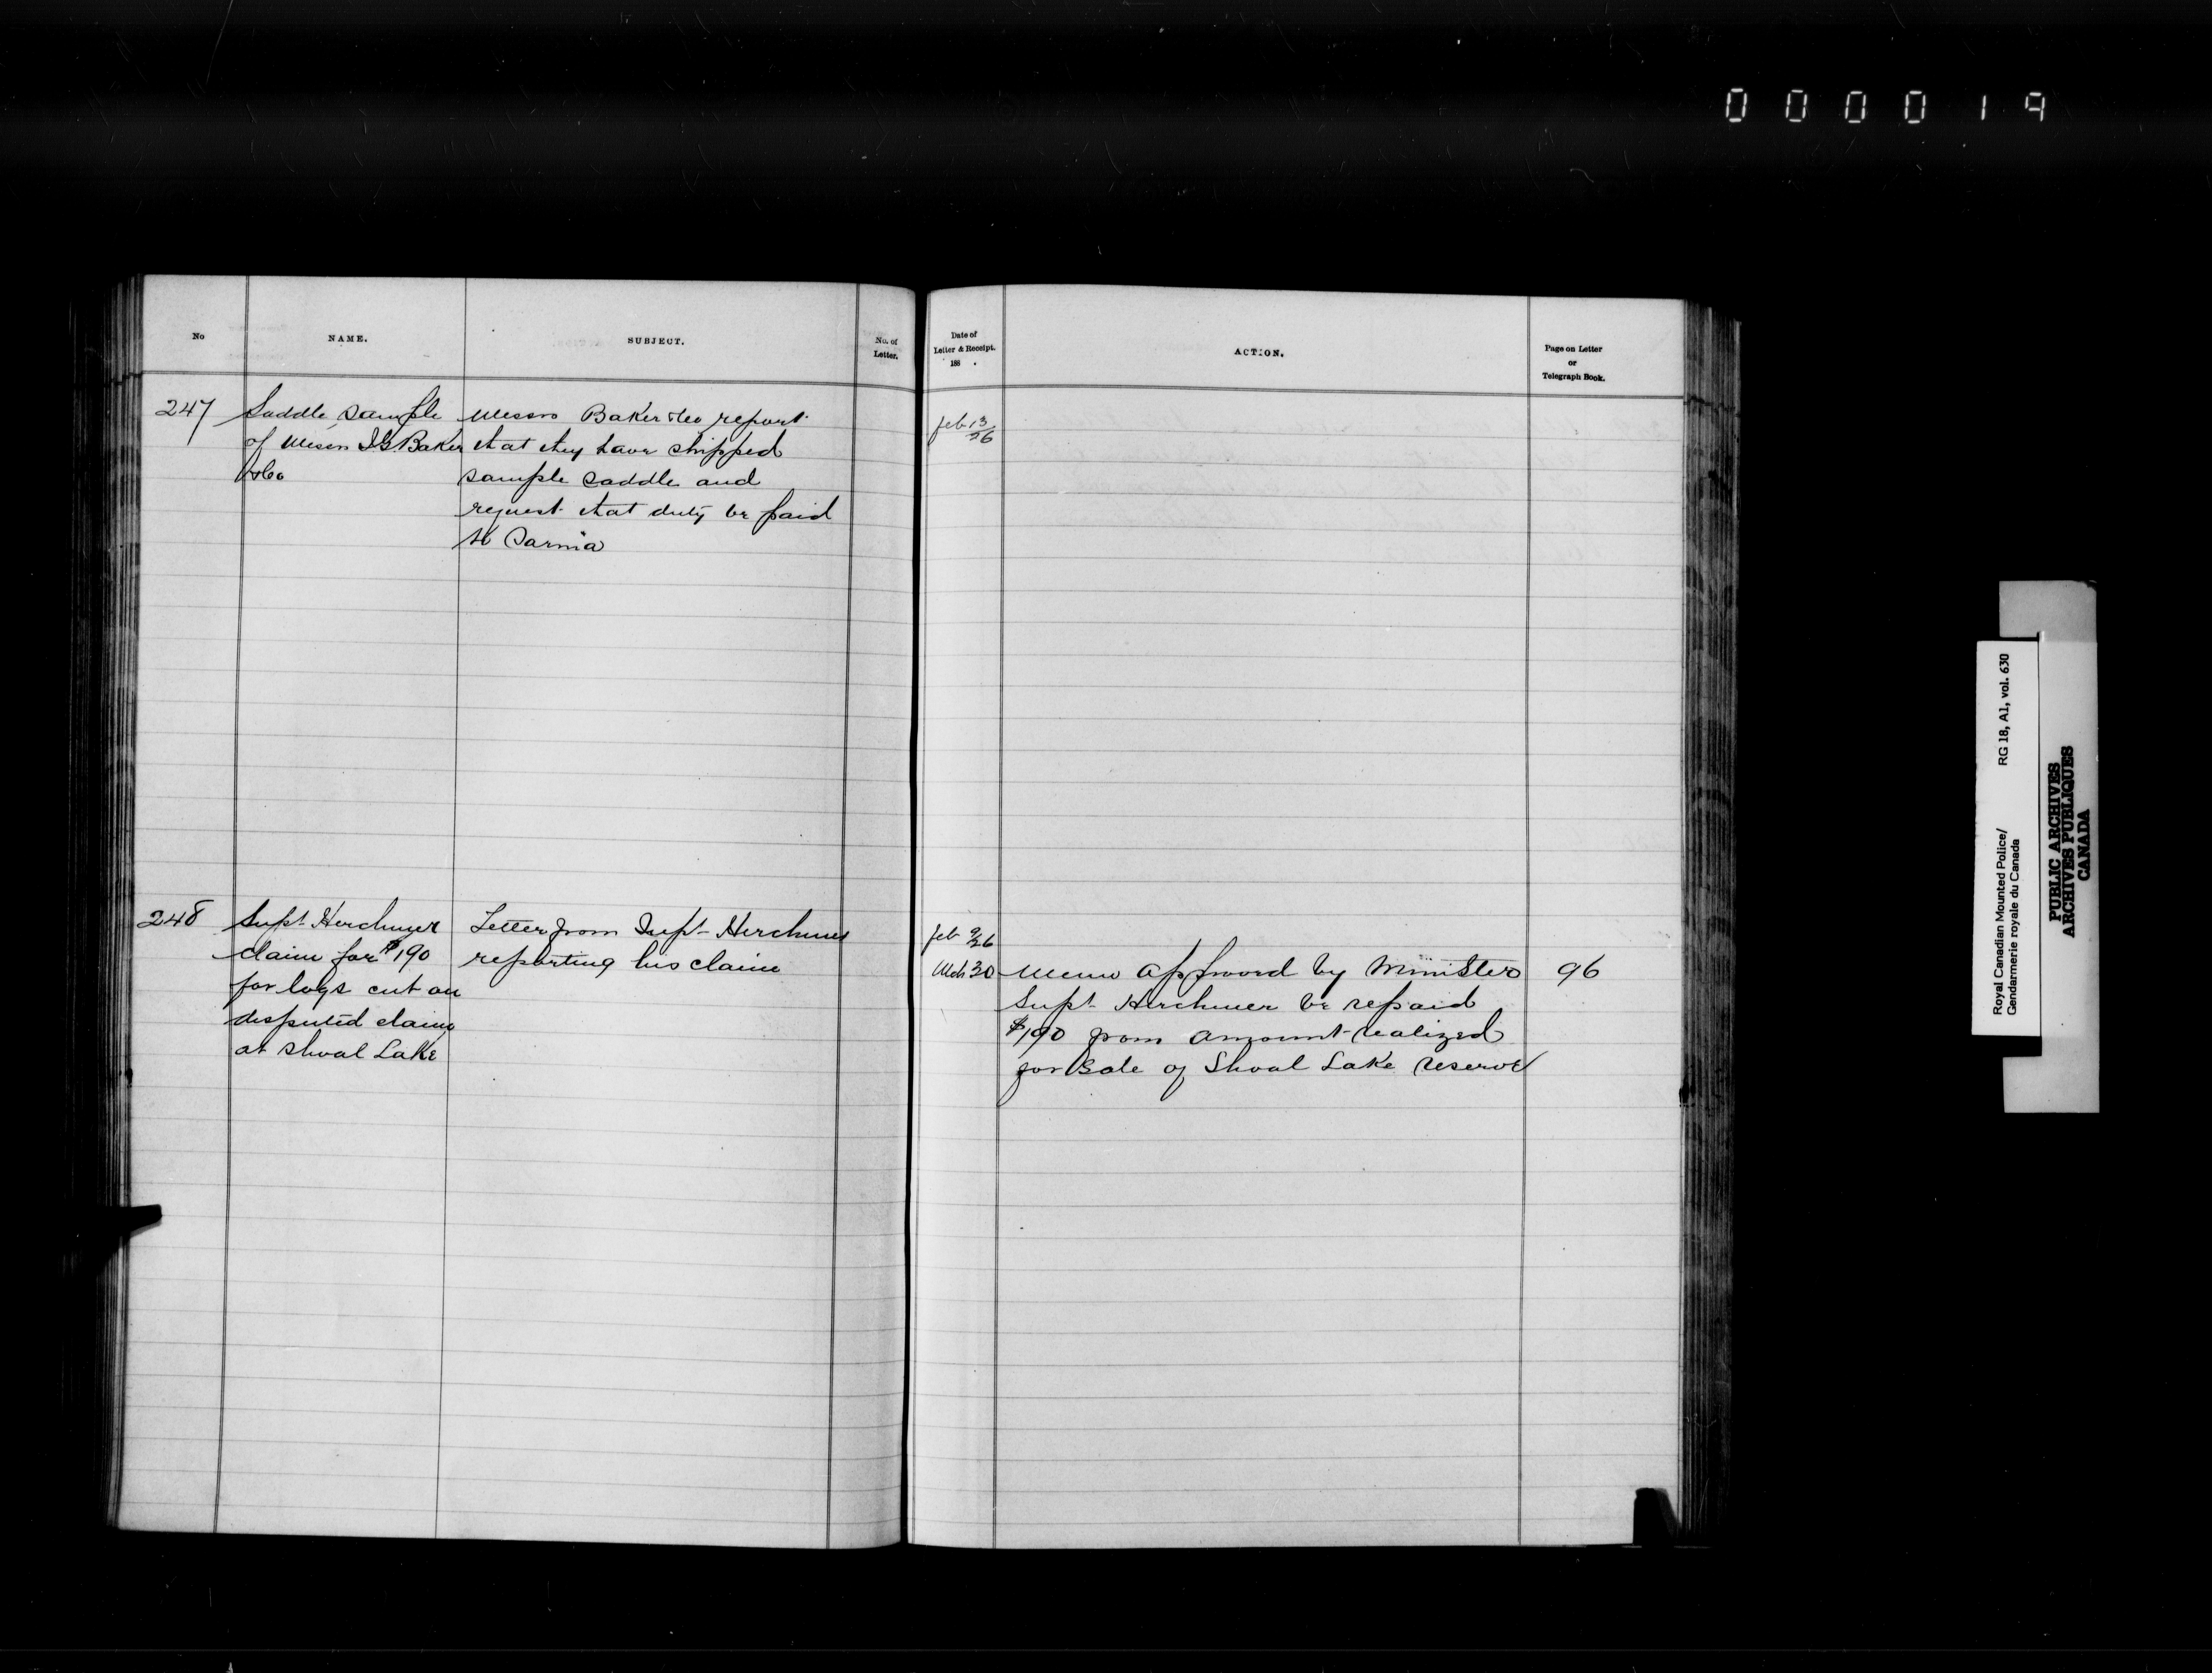 000019
No
NAME.
SUBJECT.
No. of
Letter.
Date of
Letter & Receipt.
188 .
ACTION.
Page on Letter
or
Telegraph Book.
247
Saddle, sample
of Messrs I G Baker
& Co
Messrs Baker & Co report
that they have shipped
sample saddle and
request that duty be paid
to Sarnia
Feb 13/26
248
Supt Herchmer
claim for $190
for logs cut on
disputed claim
at Shoal Lake
Letter from Supt Herchmer
reporting his claim
Feb 9/26
Mch 30
Memo approved by Minister
Supt Herchmer be repaid
$190 from amount realized
for sale of Shoal Lake reserve
96
Royal Canadian Mounted Police/
Gendarmerie royale du Canada
RG 18, A1, vol. 630
PUBLIC ARCHIVES
ARCHIVES PUBLIQUES
CANADA